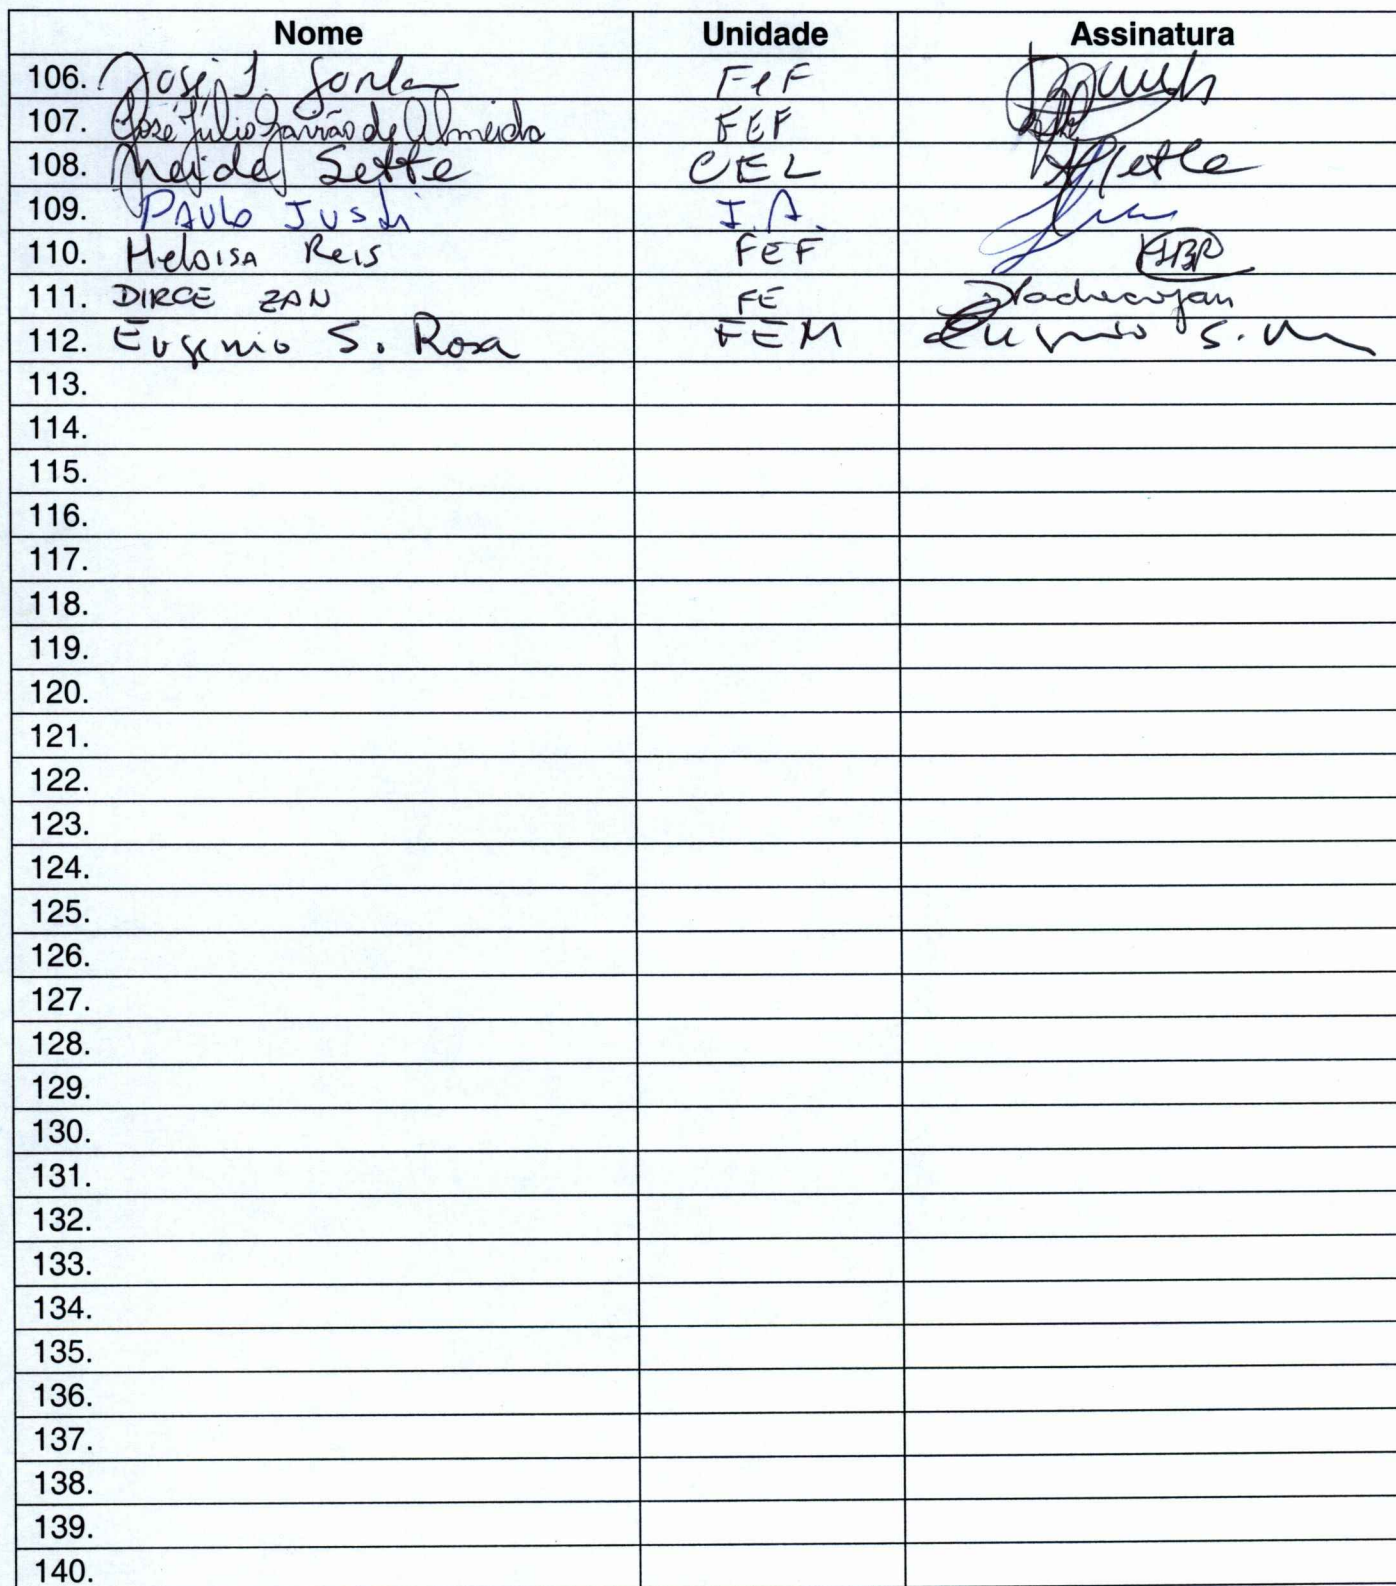 Nome Unidade Assinatura
106. José FEF
107. José Júlio Gavião de Almeida FEF
108. Neide Sette CEL Sette
109. PAULO JUSTI I.A.
110. Heloisa Reis FEF HBR
111. DIRCE ZAN FE
112. Eugenio S. Rosa FEM Eugenio S.
113.
114.
115.
116.
117.
118.
119.
120.
121.
122.
123.
124.
125.
126.
127.
128.
129.
130.
131.
132.
133.
134.
135.
136.
137.
138.
139.
140.